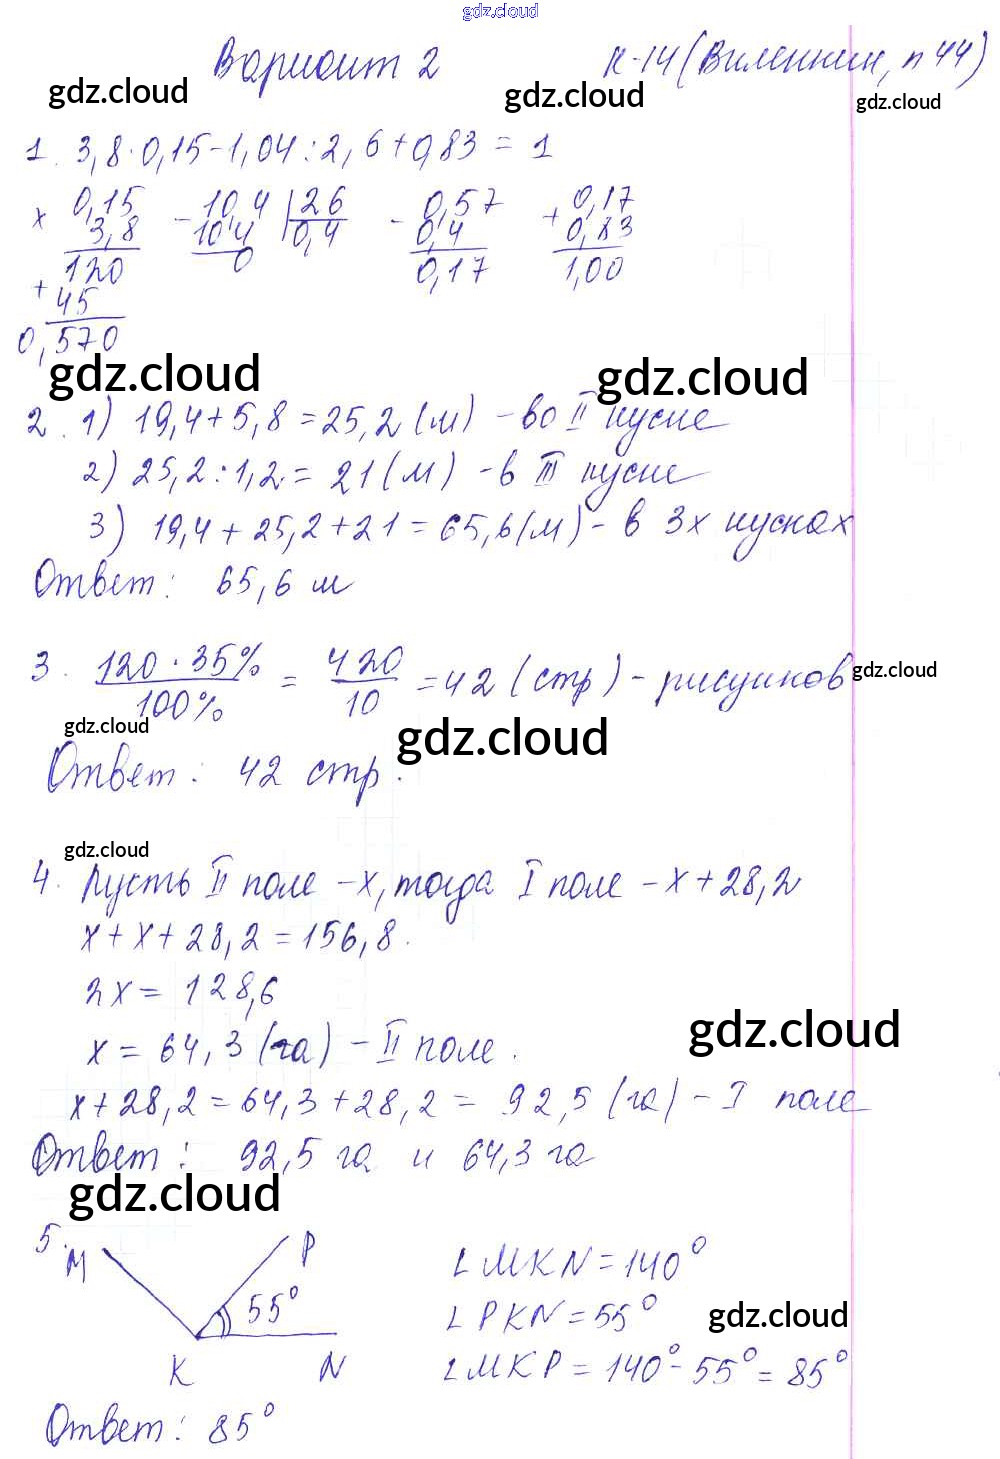 gdz.cloud
Вариант 2 К-14 (Виленкин, п 44)
gdz.cloud gdz.cloud gdz.cloud
1. 3,8·0,15-1,04:2,6+0,83 = 1
× 0,15 - 10,4 | 26 - 0,57 + 0,17
3,8 10 4 0,4 0,4 0,83
120 0 0,17 1,00
+ 45
0,570
gdz.cloud gdz.cloud
2. 1) 19,4+5,8=25,2 (м) - во II куске
2) 25,2:1,2 = 21 (м) - в III куске
3) 19,4+25,2+21=65,6 (м) - в 3х кусках
Ответ: 65,6 м
3. 120·35% / 100% = 420 / 10 = 42 (стр) - рисунков
gdz.cloud
gdz.cloud gdz.cloud
Ответ: 42 стр.
gdz.cloud
4. Пусть II поле - x, тогда I поле - x+28,2
x+x+28,2=156,8.
2x = 128,6
x = 64,3 (га) - II поле.
gdz.cloud
x+28,2=64,3+28,2 = 92,5 (га) - I поле
Ответ: 92,5 га и 64,3 га
gdz.cloud
5. M P ∠MKN = 140°
55° ∠PKN = 55°
gdz.cloud
K N ∠MKP = 140° - 55° = 85°
Ответ: 85°